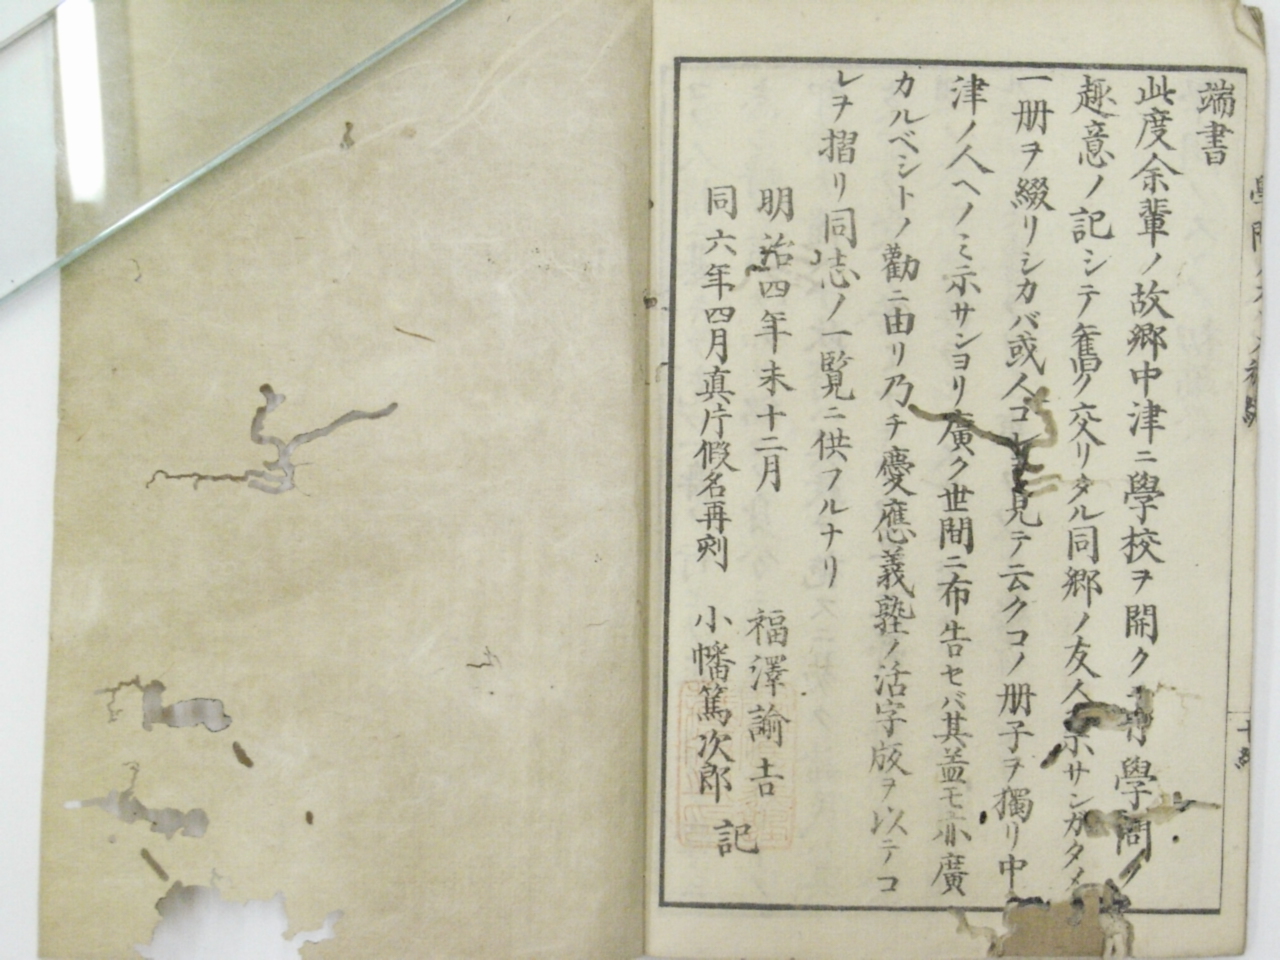 端書
此度余輩ノ故郷中津ニ學校ヲ開クニ付學問ノ
趣意ノ記シテ舊ク交リタル同郷ノ友人示サンガタメ
一册ヲ綴リシカバ或人コレヲ見テ云クコノ册子ヲ獨リ中
津ノ人ヘノミ示サンヨリ廣ク世間ニ布告セバ其益モ亦廣
カルベシトノ勸ニ由リ乃チ慶應義塾ノ活字版ヲ以テコ
レヲ摺リ同志ノ一覧ニ供フルナリ
明治四年未十二月 福澤諭吉
同六年四月真片假名再刻 小幡篤次郎
記